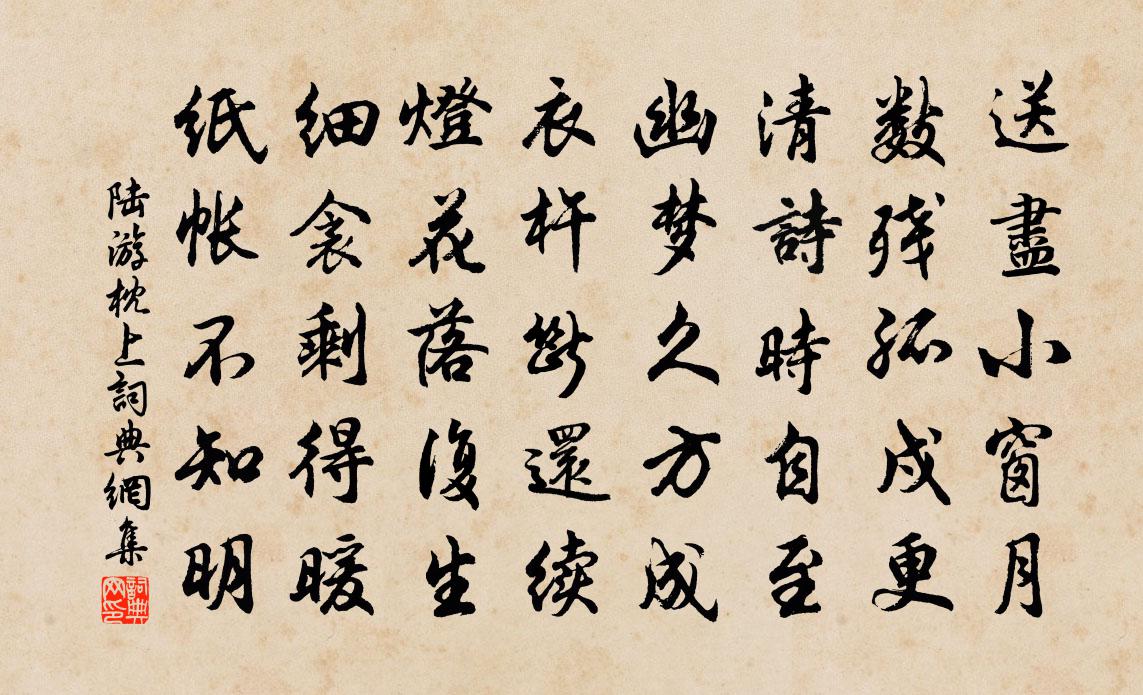 送盡小窗月
數残孤戍更
清詩時自至
幽梦久方成
衣杵斷還續
燈花落復生
細衾剩得暖
紙帳不知明
陸游枕上詞典網集
詞典网印